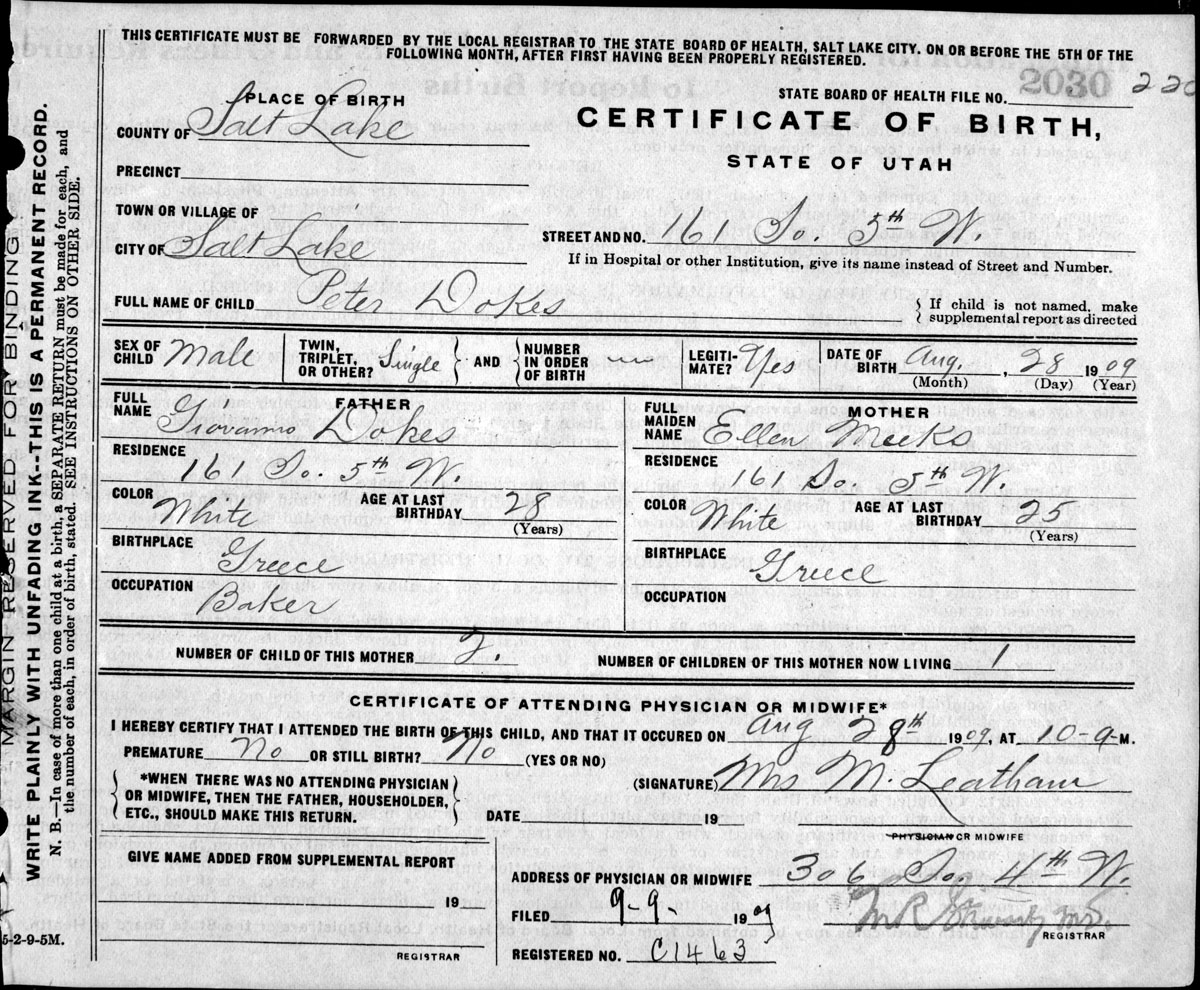 THIS CERTIFICATE MUST BE FORWARDED BY THE LOCAL REGISTRAR TO THE STATE BOARD OF HEALTH, SALT LAKE CITY. ON OR BEFORE THE 5TH OF THE
FOLLOWING MONTH, AFTER FIRST HAVING BEEN PROPERLY REGISTERED.
STATE BOARD OF HEALTH FILE NO. 2030 220
PLACE OF BIRTH
COUNTY OF Salt Lake
CERTIFICATE OF BIRTH,
STATE OF UTAH
PRECINCT
TOWN OR VILLAGE OF
CITY OF Salt Lake
STREET AND NO. 16 So. 5th W.
If in Hospital or other Institution, give its name instead of Street and Number.
FULL NAME OF CHILD Peter Dokes
{ If child is not named, make
supplemental report as directed
SEX OF CHILD Male
TWIN, TRIPLET, OR OTHER? Single } AND { NUMBER IN ORDER OF BIRTH —
LEGITI-MATE? Yes
DATE OF BIRTH Aug. , 28 1909
(Month) (Day) (Year)
FATHER
FULL NAME Giovanno Dokes
RESIDENCE
161 So. 5th W.
COLOR White AGE AT LAST BIRTHDAY 28
(Years)
BIRTHPLACE
Greece
OCCUPATION
Baker
MOTHER
FULL MAIDEN NAME Ellen Meeks
RESIDENCE
161 So. 5th W.
COLOR White AGE AT LAST BIRTHDAY 25
(Years)
BIRTHPLACE
Greece
OCCUPATION
NUMBER OF CHILD OF THIS MOTHER 2. NUMBER OF CHILDREN OF THIS MOTHER NOW LIVING 1
CERTIFICATE OF ATTENDING PHYSICIAN OR MIDWIFE*
I HEREBY CERTIFY THAT I ATTENDED THE BIRTH OF THIS CHILD, AND THAT IT OCCURED ON Aug 28th 1909, AT 10-9-M.
PREMATURE No OR STILL BIRTH? No (YES OR NO)
{ *WHEN THERE WAS NO ATTENDING PHYSICIAN
OR MIDWIFE, THEN THE FATHER, HOUSEHOLDER,
ETC., SHOULD MAKE THIS RETURN. }
(SIGNATURE) Mrs M. Leatham
DATE 19
PHYSICIAN OR MIDWIFE
GIVE NAME ADDED FROM SUPPLEMENTAL REPORT
19
REGISTRAR
ADDRESS OF PHYSICIAN OR MIDWIFE 306 So. 4th W.
FILED 9-9- 1909
REGISTRAR
REGISTERED NO. C1463
MARGIN RESERVED FOR BINDING
WRITE PLAINLY WITH UNFADING INK--THIS IS A PERMANENT RECORD.
N. B.—In case of more than one child at a birth, a SEPARATE RETURN must be made for each, and
the number of each, in order of birth, stated. SEE INSTRUCTIONS ON OTHER SIDE.
5-2-9-5M.